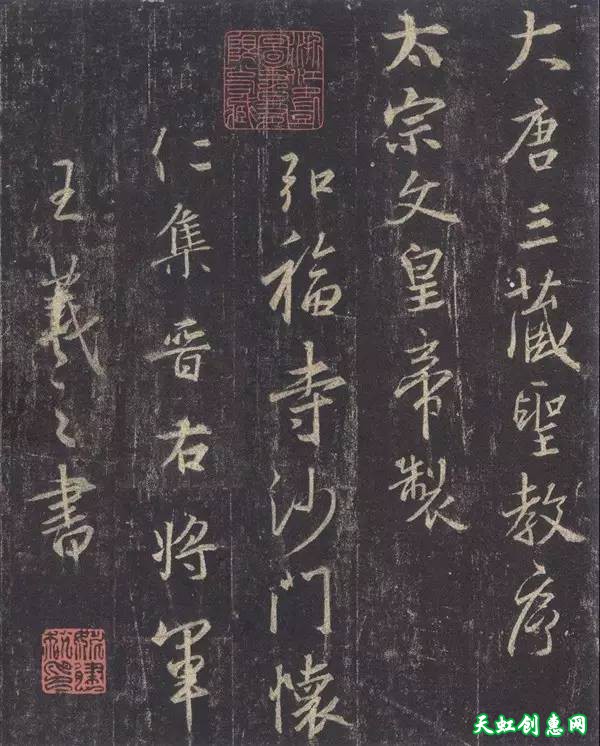 大唐三藏聖教序
太宗文皇帝製
弘福寺沙門懷
仁集晉右將軍
王羲之書
天虹创惠网